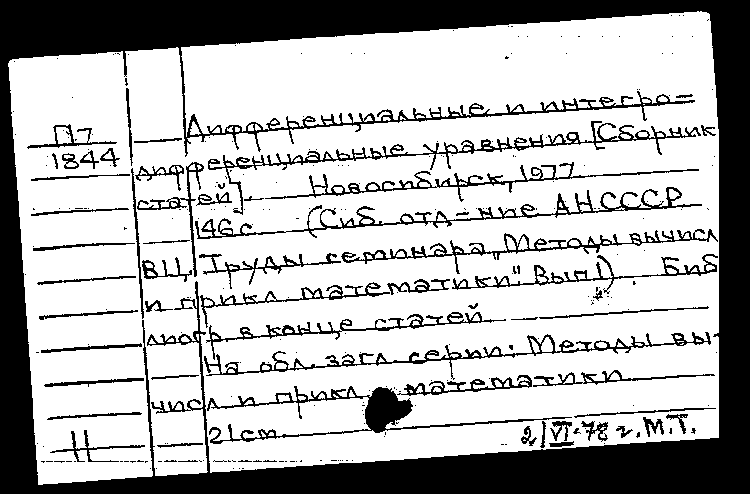 Дифференциальные и интегро=
П7
1844
дифференциальные уравнения. [Сборник
статей]. Новосибирск, 1977
146с (Сиб. отд-ние АН СССР
ВЦ. Труды семинара „Методы вычисл
и прикл математики" Вып 1). Биб
лиогр. в конце статей
На обл. загл. серии: Методы вы-
числ и прикл математики
21 cm.
11
2/VI-78 г. М.Т.